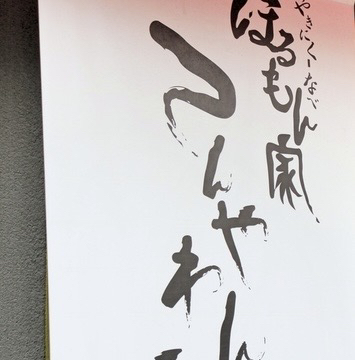 やきにくーなべ
ほるもん家
てんやわん